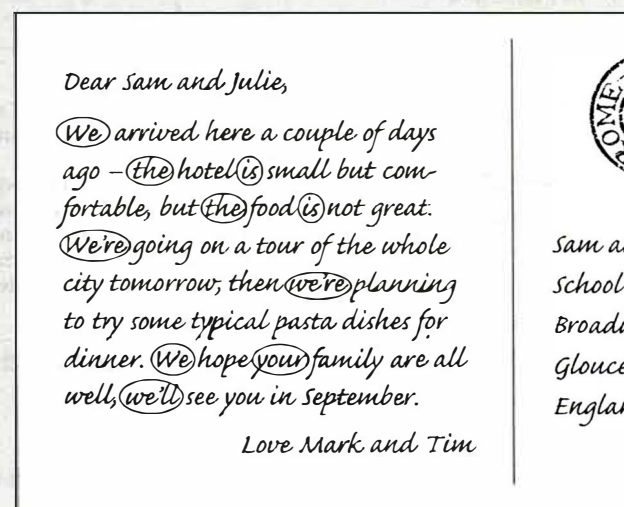 Dear Sam and Julie,
We arrived here a couple of days
ago – the hotel is small but com-
fortable, but the food is not great.
We're going on a tour of the whole
city tomorrow, then we're planning
to try some typical pasta dishes for
dinner. We hope your family are all
well, we'll see you in September.
Love Mark and Tim
ROME
Sam a
School
Broad
Glouce
Englan